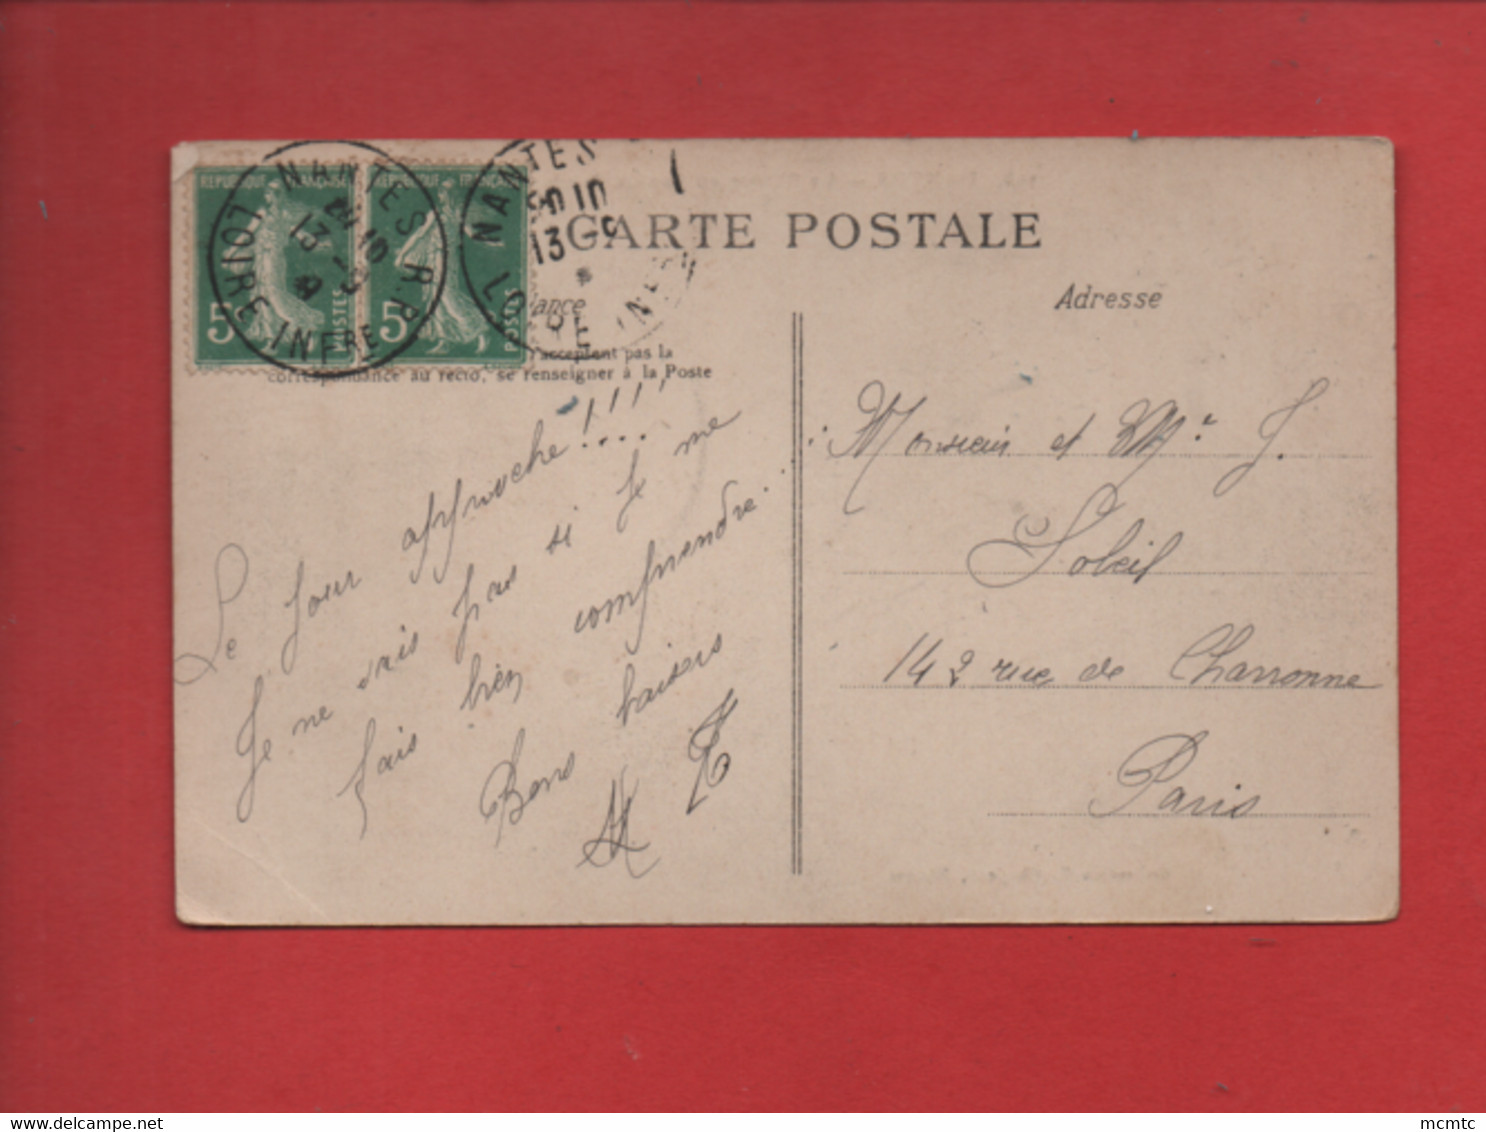 CARTE POSTALE
REPUBLIQUE FRANÇAISE
5
POSTES
REPUBLIQUE FRANÇAISE
5
POSTES
NANTES R.P.
13
LOIRE INFRE
NANTES
13
LOIRE INF
acceptent pas la
correspondance au recto, se renseigner à la Poste
Le jour approche!!!!!...
Je ne sais pas si je me
fais bien comprendre...
Bons baisers
Adresse
Monsieur et Me J.
Soleil
142 rue de Charronne
Paris
delcampe.net
mcmtc